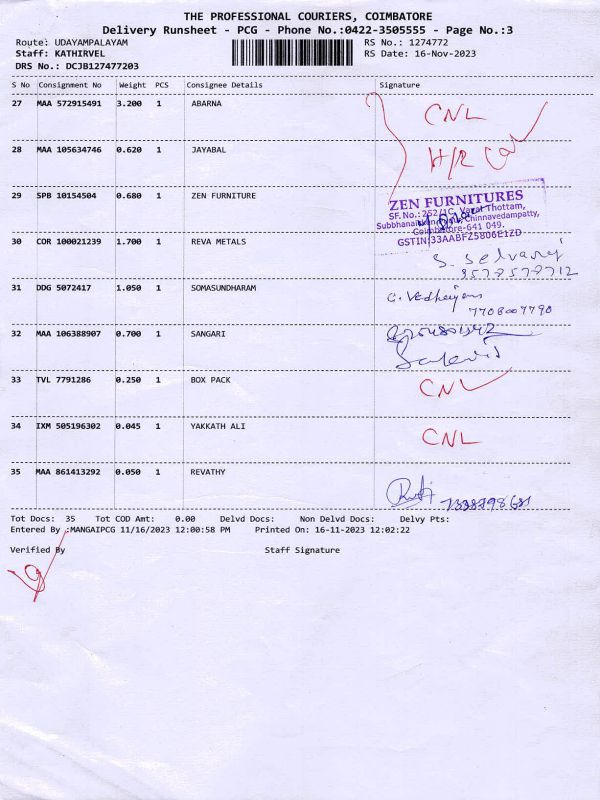 THE PROFESSIONAL COURIERS, COIMBATORE
Delivery Runsheet - PCG - Phone No.:0422-3505555 - Page No.:3
Route: UDAYAMPALAYAM RS No.: 1274772
Staff: KATHIRVEL RS Date: 16-Nov-2023
DRS No.: DCJB127477203
S No Consignment No Weight PCS Consignee Details Signature
27 MAA 572915491 3.200 1 ABARNA CNL
28 MAA 105634746 0.620 1 JAYABAL H/R
29 SPB 10154504 0.680 1 ZEN FURNITURE
ZEN FURNITURES
SF.No.:252/1C, Thottam,
Chinnavedampatty,
Coimbatore-641 049.
GSTIN:33AABFZ5806E1ZD
30 COR 100021239 1.700 1 REVA METALS S. Selvaraj
31 DDG 5072417 1.050 1 SOMASUNDHARAM
7708007790
32 MAA 106388907 0.700 1 SANGARI
33 TVL 7791286 0.250 1 BOX PACK CNL
34 IXM 505196302 0.045 1 YAKKATH ALI CNL
35 MAA 861413292 0.050 1 REVATHY
Tot Docs: 35 Tot COD Amt: 0.00 Delvd Docs: Non Delvd Docs: Delvy Pts:
Entered By :MANGAIPCG 11/16/2023 12:00:58 PM Printed On: 16-11-2023 12:02:22
Verified By Staff Signature